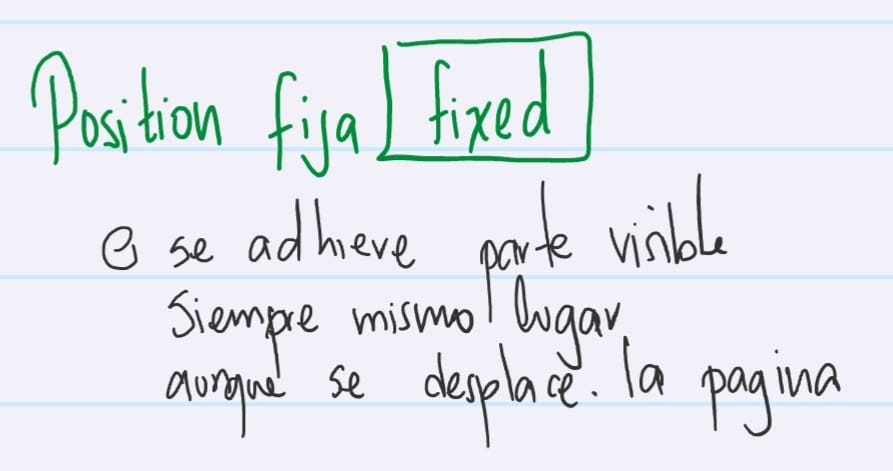 Position fija fixed
se adhieve parte visible
Siempre mismo lugar
aunque se desplace. la pagina